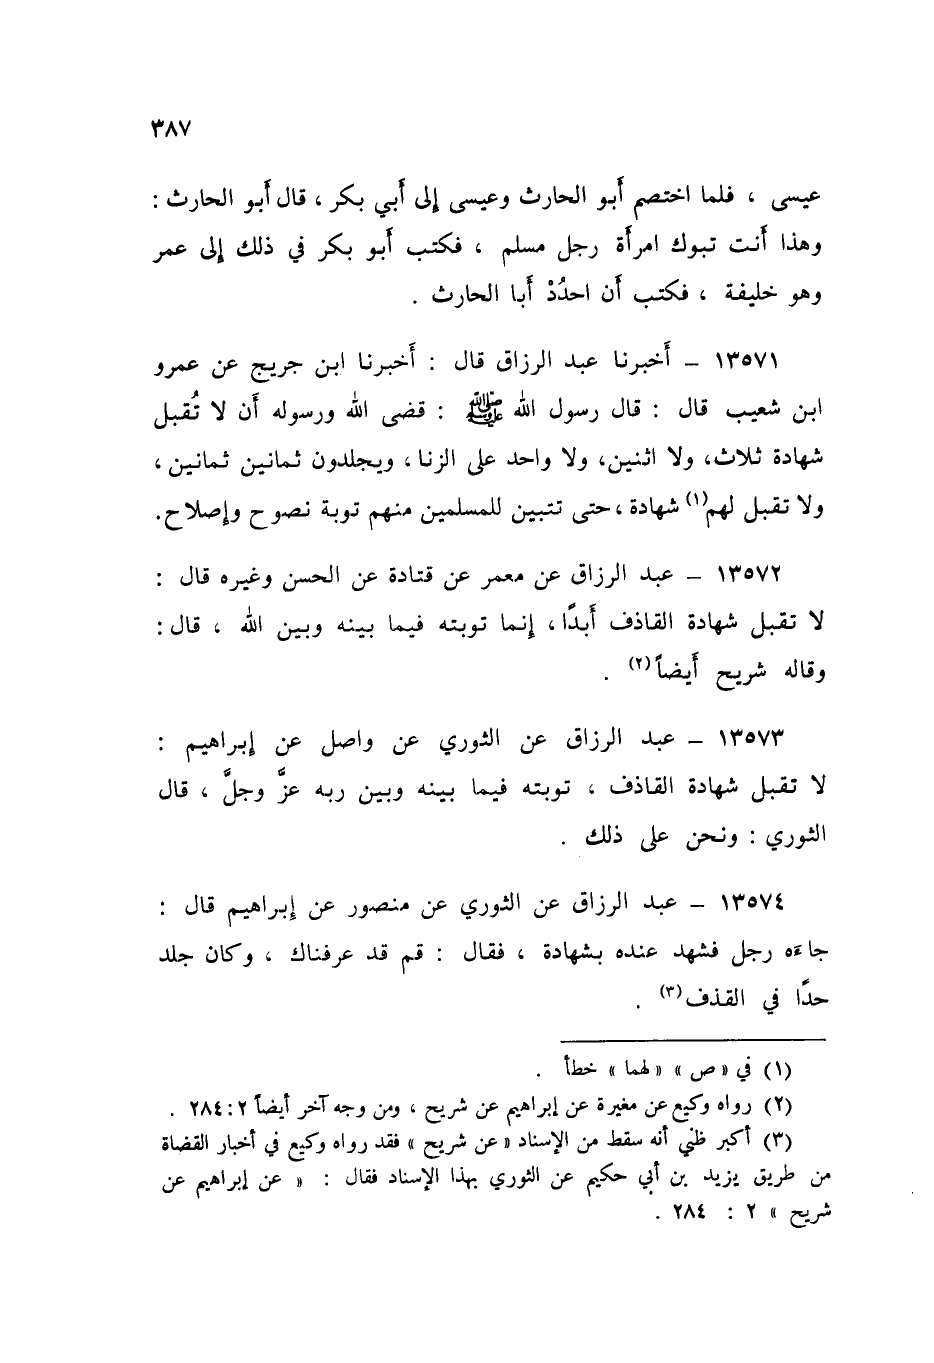 ٣٨٧
عيسى ، فلما اختصم أبو الحارث وعيسى إلى أبي بكر ، قال أبو الحارث :
وهذا أنت تبوك امرأة رجل مسلم ، فكتب أبو بكر في ذلك إلى عمر
وهو خليفة ، فكتب أن احدُدْ أبا الحارث .
١٣٥٧١ – أخبرنا عبد الرزاق قال : أخبرنا ابن جريج عن عمرو
ابن شعيب قال : قال رسول الله ﷺ : قضى الله ورسوله أن لا تُقبل
شهادة ثلاث، ولا اثنين، ولا واحد على الزنا ، ويجلدون ثمانين ثمانين ،
ولا تقبل لهم(١) شهادة ، حتى تتبين للمسلمين منهم توبة نصوح وإصلاح.
١٣٥٧٢ – عبد الرزاق عن معمر عن قتادة عن الحسن وغيره قال :
لا تقبل شهادة القاذف أبدًا ، إنما توبته فيما بينه وبين الله ، قال :
وقاله شريح أيضاً(٢) .
١٣٥٧٣ – عبد الرزاق عن الثوري عن واصل عن إبراهيم :
لا تقبل شهادة القاذف ، توبته فيما بينه وبين ربه عزَّ وجلَّ ، قال
الثوري : ونحن على ذلك .
١٣٥٧٤ – عبد الرزاق عن الثوري عن منصور عن إبراهيم قال :
جاءه رجل فشهد عنده بشهادة ، فقال : قم قد عرفناك ، وكان جلد
حدًّا في القذف(٣) .
(١) في « ص » « لهما » خطأ .
(٢) رواه وكيع عن مغيرة عن إبراهيم عن شريح ، ومن وجه آخر أيضاً ٢ : ٢٨٤ .
(٣) أكبر ظني أنه سقط من الإسناد « عن شريح » فقد رواه وكيع في أخبار القضاة
من طريق يزيد بن أبي حكيم عن الثوري بهذا الإسناد فقال : « عن إبراهيم عن
شريح » ٢ : ٢٨٤ .